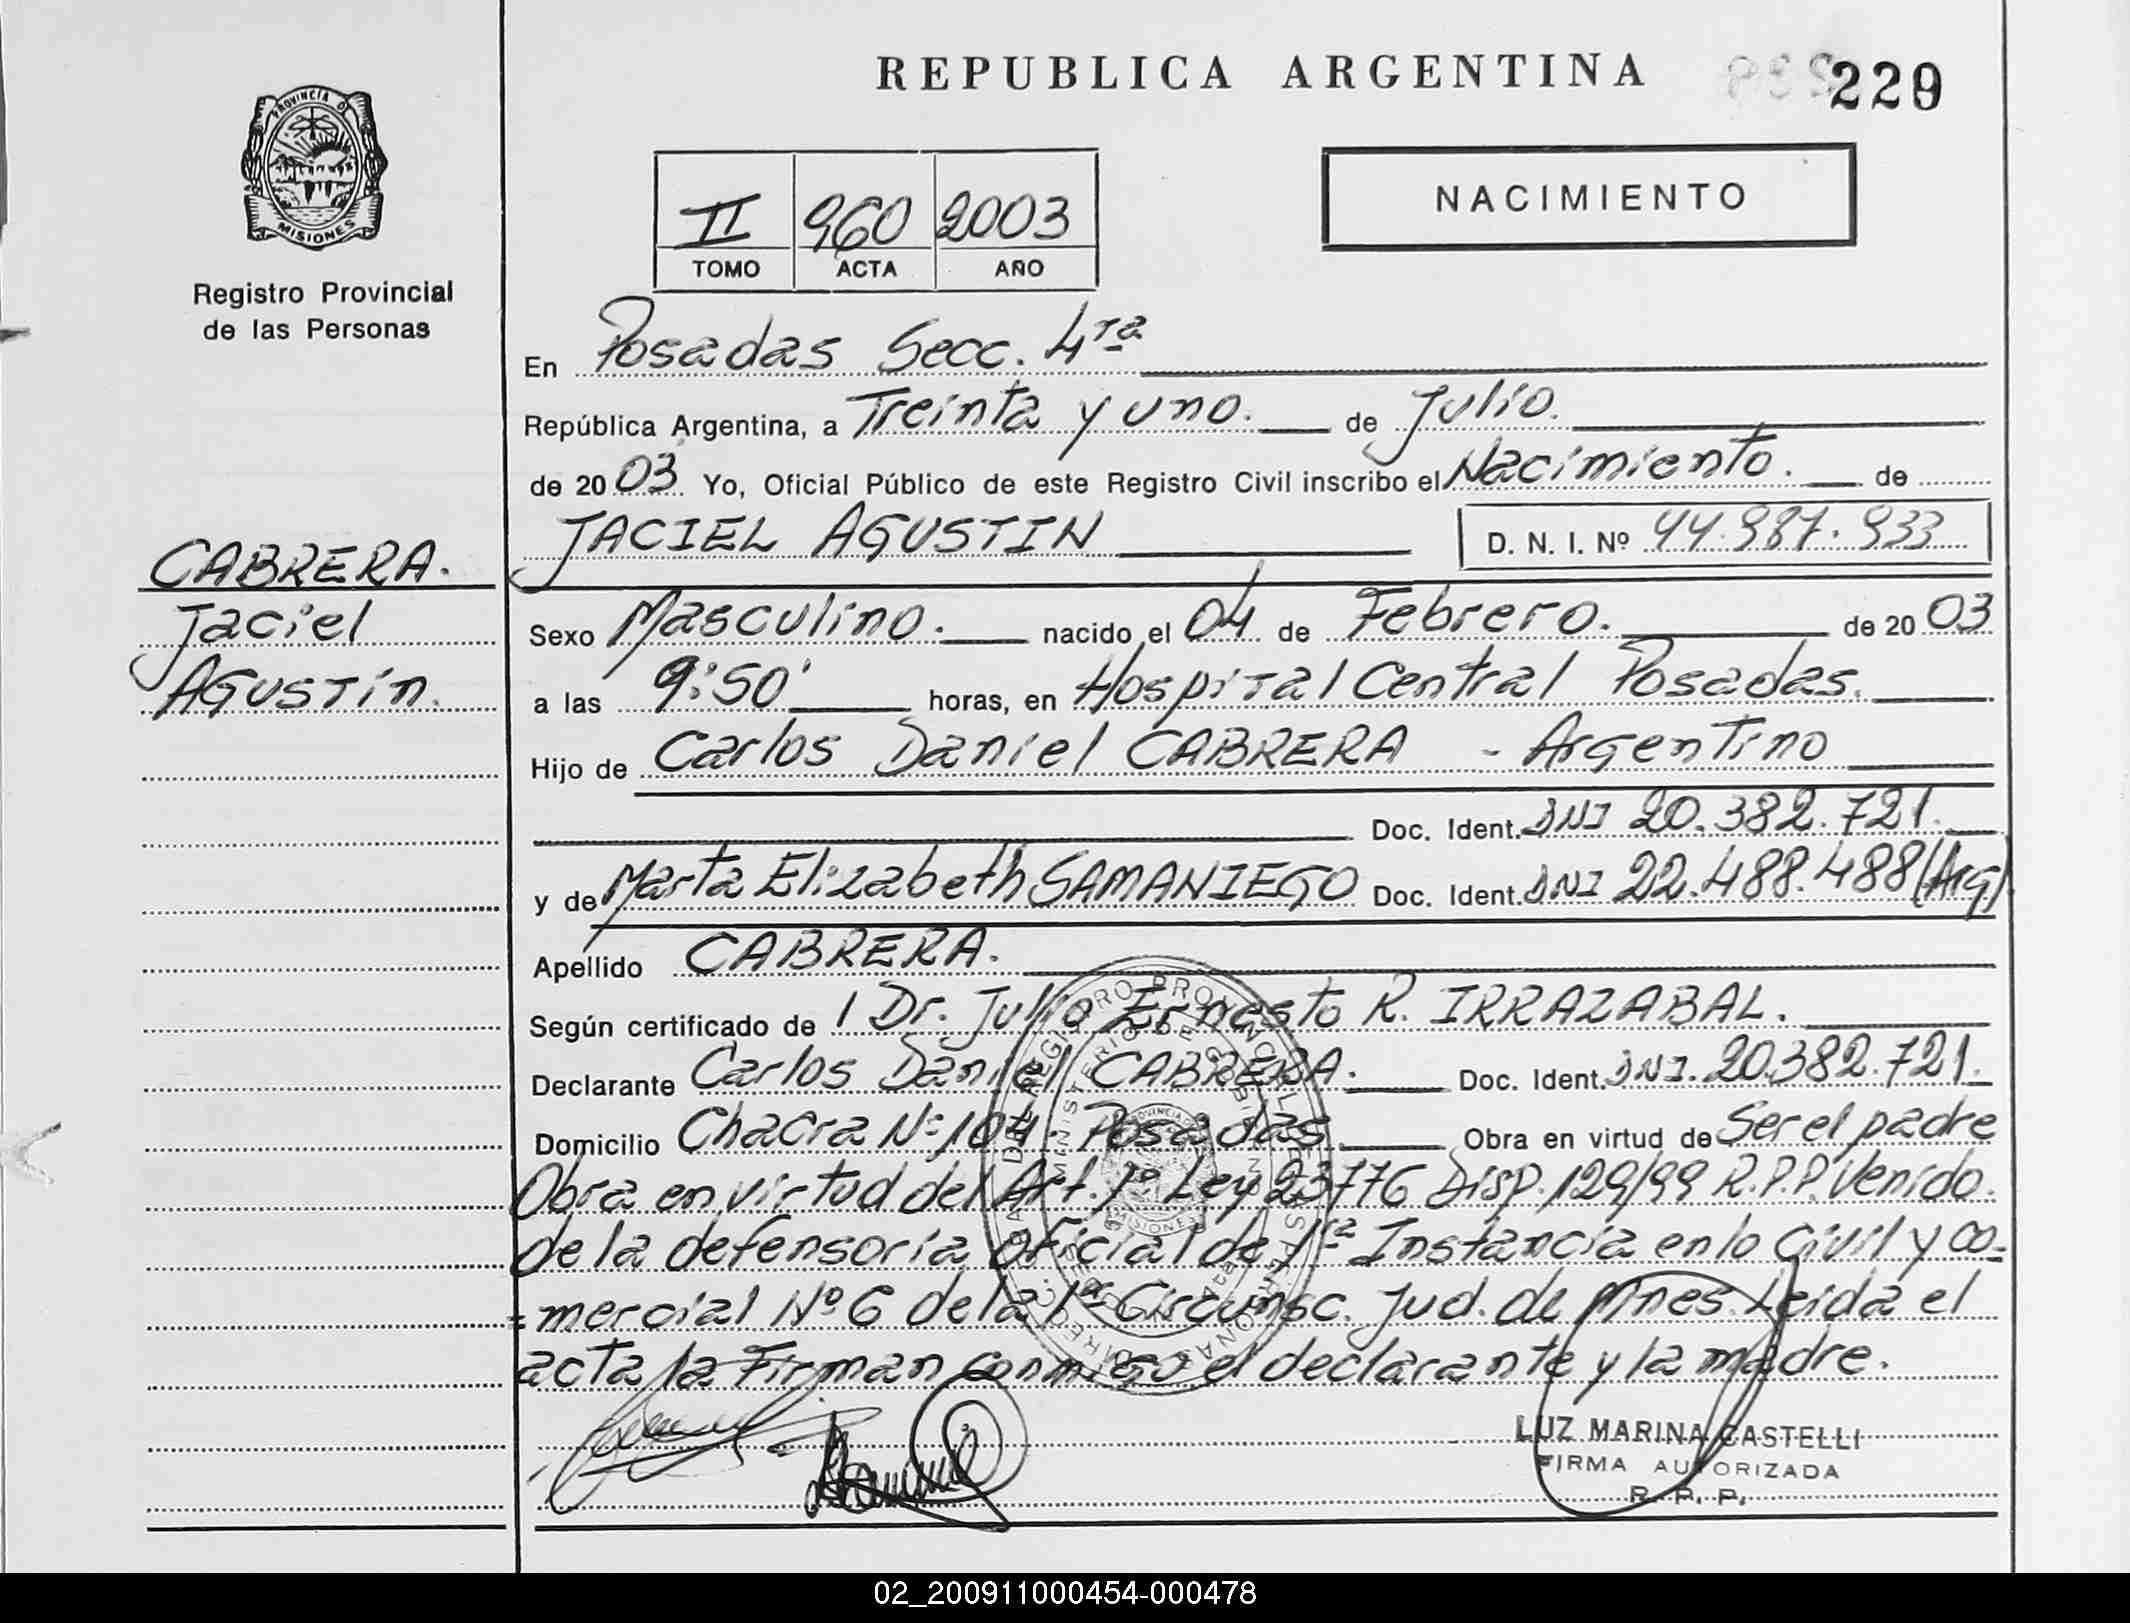 REPUBLICA ARGENTINA
229
PROVINCIA D
MISIONES
Registro Provincial
de las Personas
II 960 2003
TOMO ACTA AÑO
NACIMIENTO
En Posadas Secc. 4ta
República Argentina, a Treinta y uno. de Julio.
de 2003 Yo, Oficial Público de este Registro Civil inscribo el Nacimiento. de
JACIEL AGUSTIN D. N. I. Nº 44.987.933
CABRERA.
Jaciel
Agustin.
Sexo Masculino. nacido el 04 de Febrero. de 2003
a las 9:50' horas, en Hospital Central Posadas.
Hijo de Carlos Daniel CABRERA - Argentino
Doc. Ident. DNI 20.382.721.
y de Marta Elizabeth SAMANIEGO Doc. Ident. DNI 22.488.488 (Arg)
Apellido CABRERA.
Según certificado de / Dr. Julio Ernesto R. IRRAZABAL.
Declarante Carlos Daniel CABRERA. Doc. Ident. DNI. 20.382.721.
Domicilio Chacra Nº 104. Posadas. Obra en virtud de Ser el padre
Obra en virtud del Art. 1º Ley 23776 Disp. 129/99 R.P.P. Venido.
de la defensoria oficial de 1ra Instancia en lo Civil y co-
-mercial Nº 6 de la 1ra Circunsc. Jud. de Mnes. Leida el
acta la Firman conmigo el declarante y la madre.
LUZ MARINA CASTELLI
FIRMA AUTORIZADA
R. P. P.
02_200911000454-000478